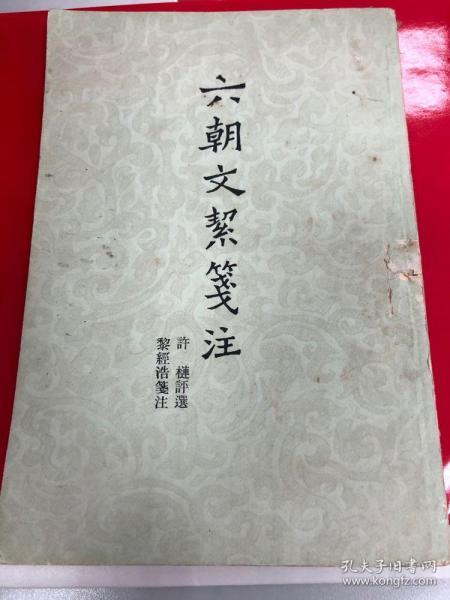 六朝文絜箋注
許槤評選
黎經浩箋注
孔夫子旧书网
www.kongfz.com